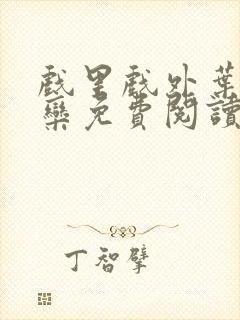 戲里戲外葉
欒免費閱讀
丁智擘